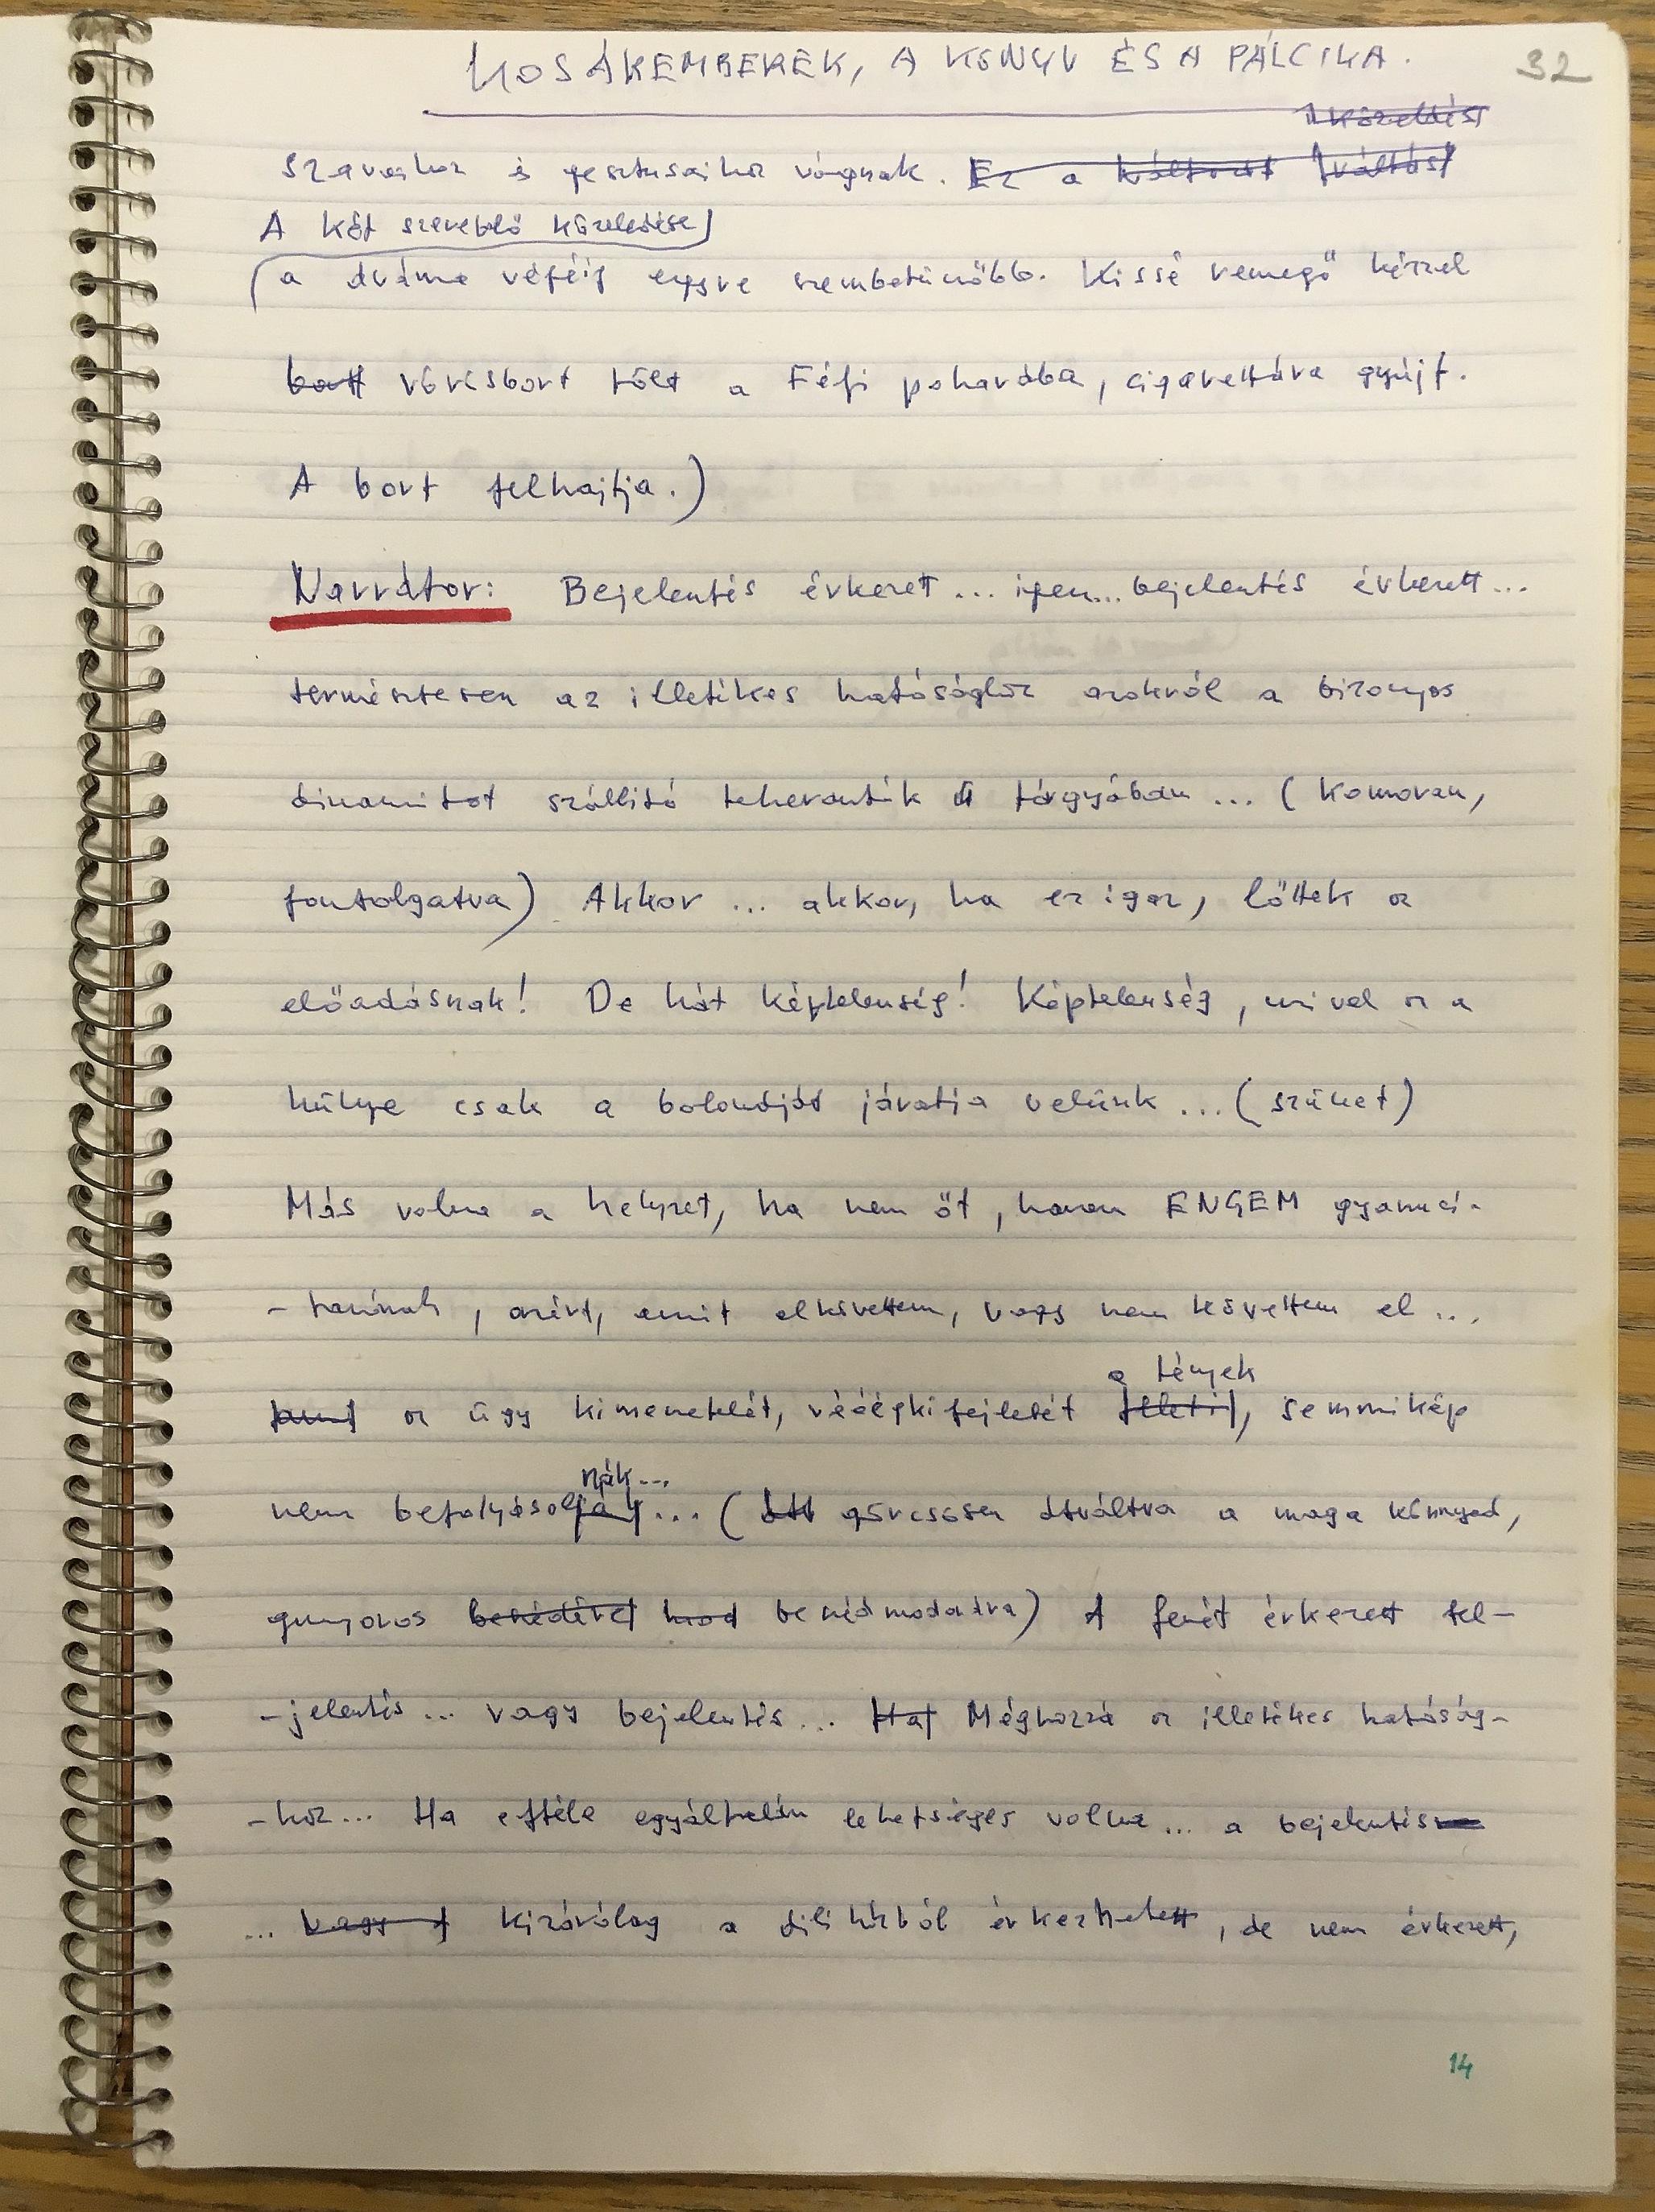 KOSÁREMBEREK, A KÖNYV ÉS A PÁLCIKA.
32
közeledés
szavaihoz és gesztusaihoz vágnak. Ez a változás váltás
A két szereplő közeledése
a dráma végéig egyre szembetűnőbb. Kissé remegő kézzel
bort vörösbort tölt a Férfi poharába, cigarettára gyújt.
A bort felhajtja.)
Narrátor: Bejelentés érkezet... igen... bejelentés érkezett...
természtesen az illetékes hatósághoz azokról a bizonyos
dinamitot szállító teherautók tárgyában... (Komoran,
fontolgatva) Akkor ... akkor, ha ez igaz, lőttek az
előadásnak! De hát képtelenség! Képtelenség, mivel ez a
hülye csak a bolondját járatja velünk... (szünet)
Más volna a helyzet, ha nem őt, hanem ENGEM gyanusí-
-tanának, azért, amit elkövettem, vagy nem követtem el...
a tények
az ügy kimenetelét, végkifejletét, semmikép
nák...
nem befolyásolják ... (görcsösen átváltva a maga könnyed,
gunyoros beszédével mod beszédmodorára) A fenét érkezett fel-
-jelentés... vagy bejelentés... Ha Méghozzá az illetékes hatóság-
-hoz... Ha efféle egyáltalán lehetséges volna... a bejelentés
... vagy kizárólag a diliházból érkezhetett, de nem érkezett,
14